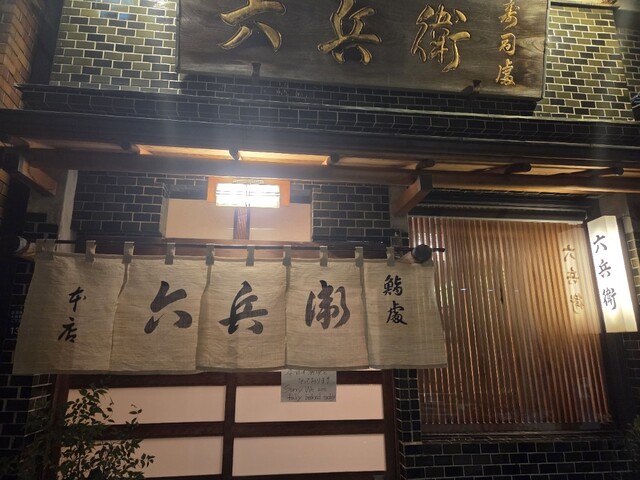 六兵衛
寿司處
本店
六兵衛
鮨處
六兵衛
Sorry We are
fully booked